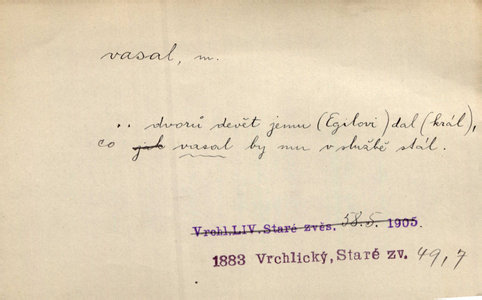 vasal, m.
.. dvorů devět jemu (Egilovi) dal (král),
co jak vasal by mu v službě stál.
Vrchl.LIV.Staré zvěs. 58.5. 1905.
1883 Vrchlický, Staré zv. 49,7